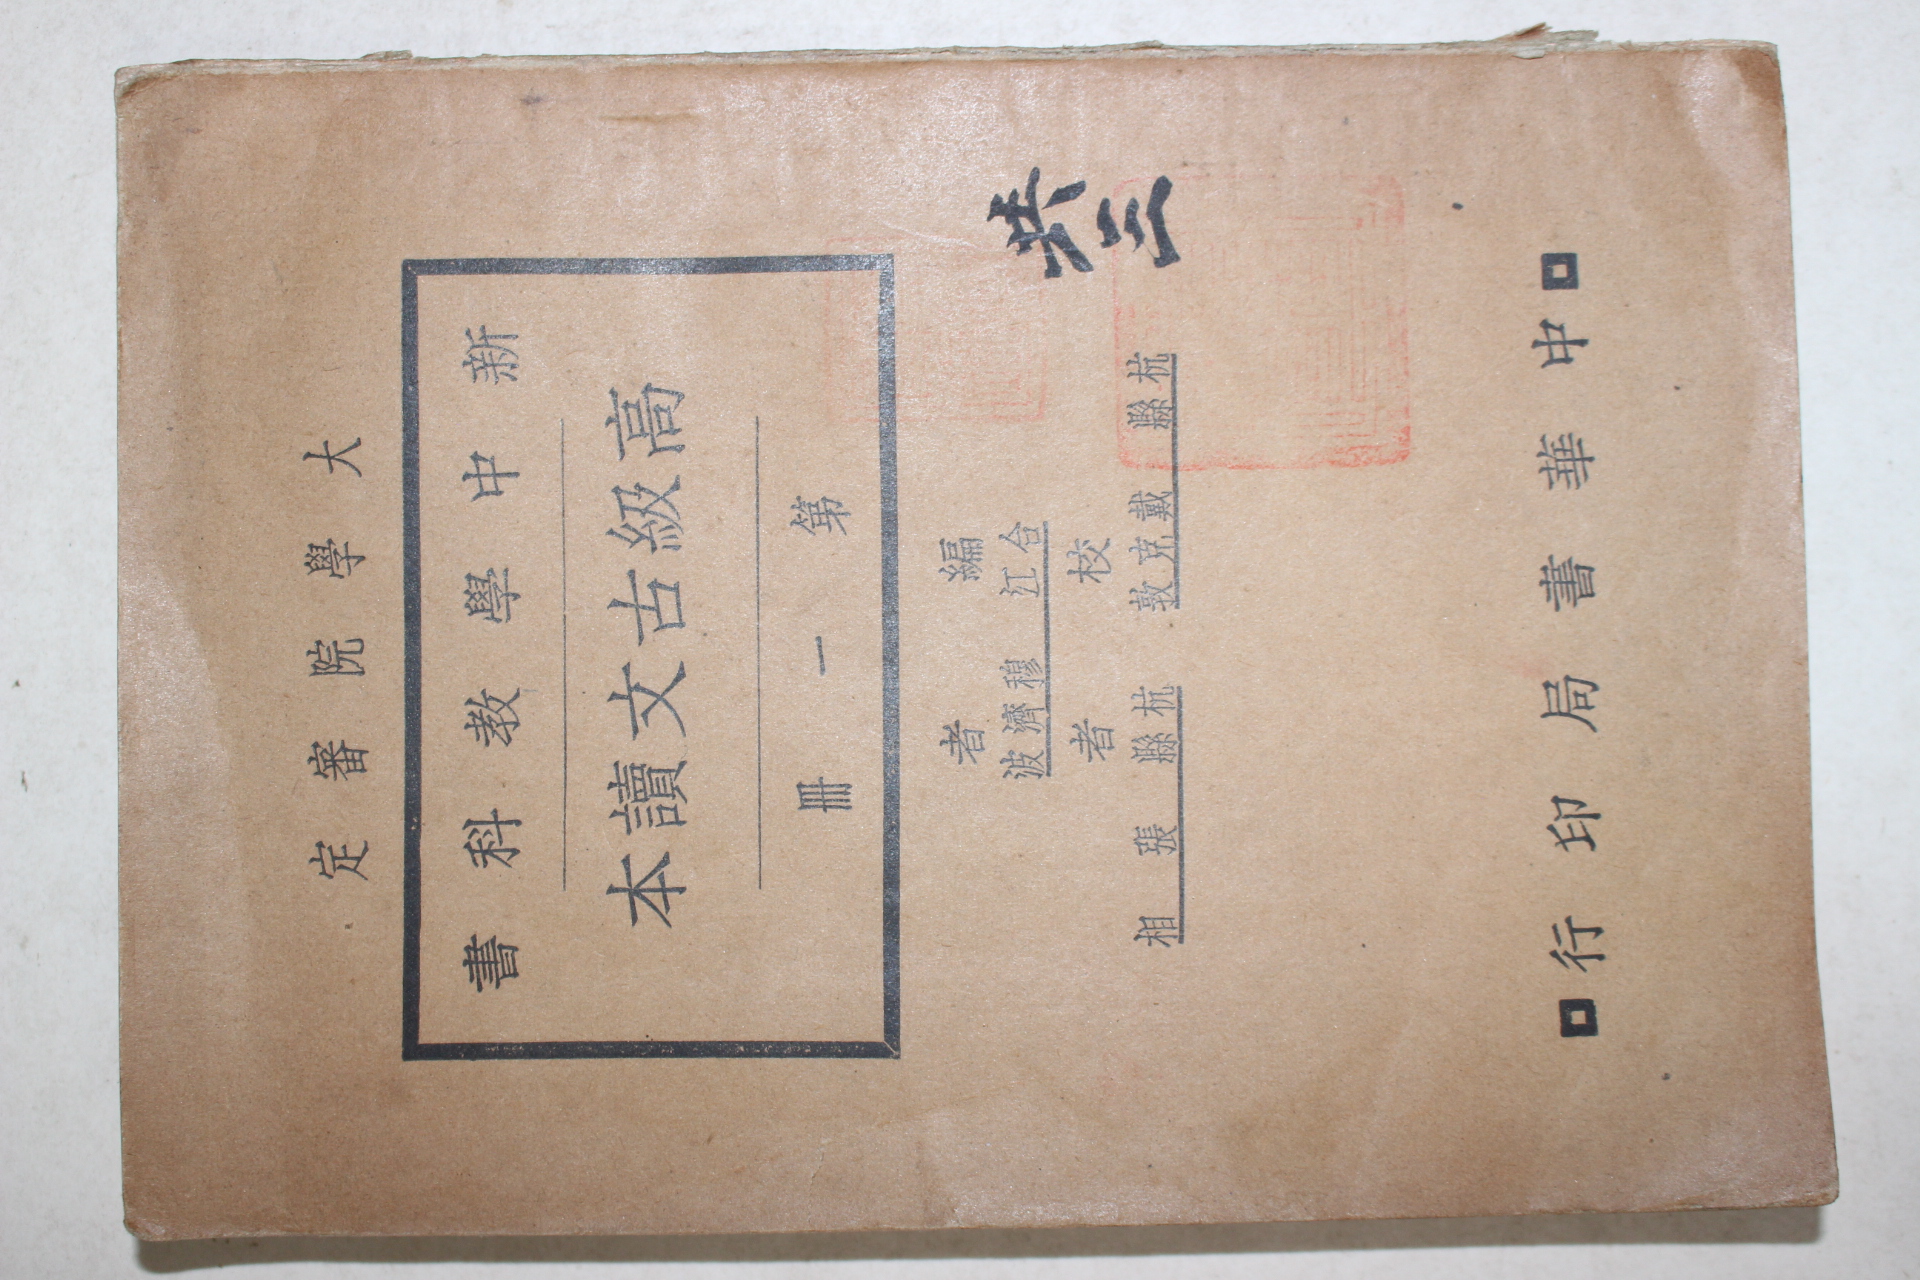 大學院審定
新中學教科書
高級古文讀本
第一冊
編者
合江 穆濟波
校者
杭縣 戴克敦 杭縣 張相
共三
中華書局印行